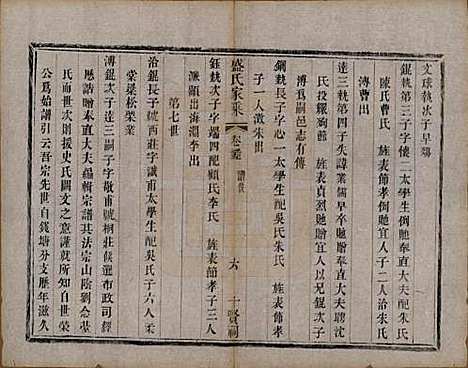 文球執次子早殤
錕執第三子字悽一太學生例貤奉直大夫配朱氏
陳氏曹氏 旌表節孝例贈宜人子二人洽朱氏
溥曹出
達三執第四子失諱業儒早卒貤贈奉直大夫聘沈
氏投繯殉節 旌表貞烈貤贈宜人以兄錕次子
溥為嗣邑志有傳
鍘執長子字心一太學生配吳氏朱氏 旌表節孝
子一人激朱出
鈺執次子字端四配顧氏李氏 旌表節孝子三人
濂顧出海瀛李出
第七世
洽錕長子字 號西莊太學生配吳氏子六人柔
棠 椂松榮業
溥錕次子達三嗣子字敬甫號桐莊候選布政司經
歷誥贈奉直大夫編輯宗譜其法宗山陰劉念基
氏而世次則援史氏闕文之意謹就所知以自世榮
公為始譜引云吾宗先世自錢塘分支歷年滋久
盛氏家乘
卷之 譜世
六
十賢祠